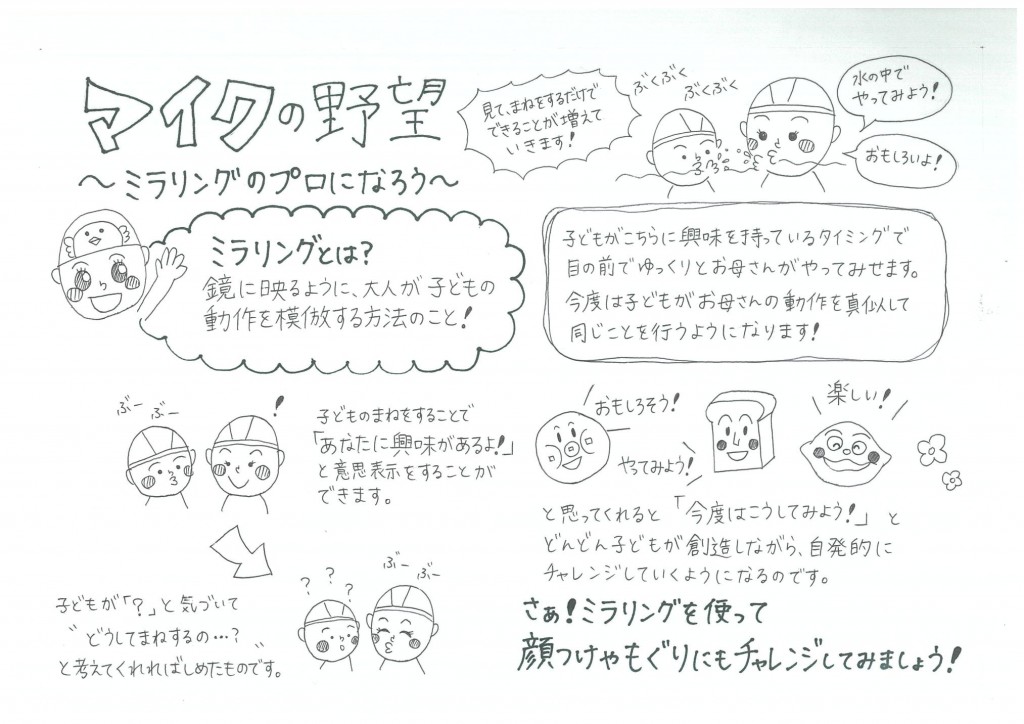 マイクの野望
～ミラリングのプロになろう～
ミラリングとは？
鏡に映るように、大人が子どもの
動作を模倣する方法のこと！
ぶー ぶー
！
子どものまねをすることで
「あなたに興味があるよ！」
と意思表示をすることが
できます。
？ ？ ？
ぶー ぶー
子どもが「？」と気づいて
〝どうしてまねするの…？〟
と考えてくれればしめたものです。
見て、まねをするだけで
できることが増えて
いきます！
ぶくぶく
ぶくぶく
水の中で
やってみよう！
おもしろいよ！
子どもがこちらに興味を持っているタイミングで
目の前でゆっくりとお母さんがやってみせます。
今度は子どもがお母さんの動作を真似して
同じことを行うようになります！
おもしろそう！
やってみよう！
楽しい！
と思ってくれると「今度はこうしてみよう！」と
どんどん子どもが創造しながら、自発的に
チャレンジしていくようになるのです。
さぁ！ミラリングを使って
顔つけやもぐりにもチャレンジしてみましょう！